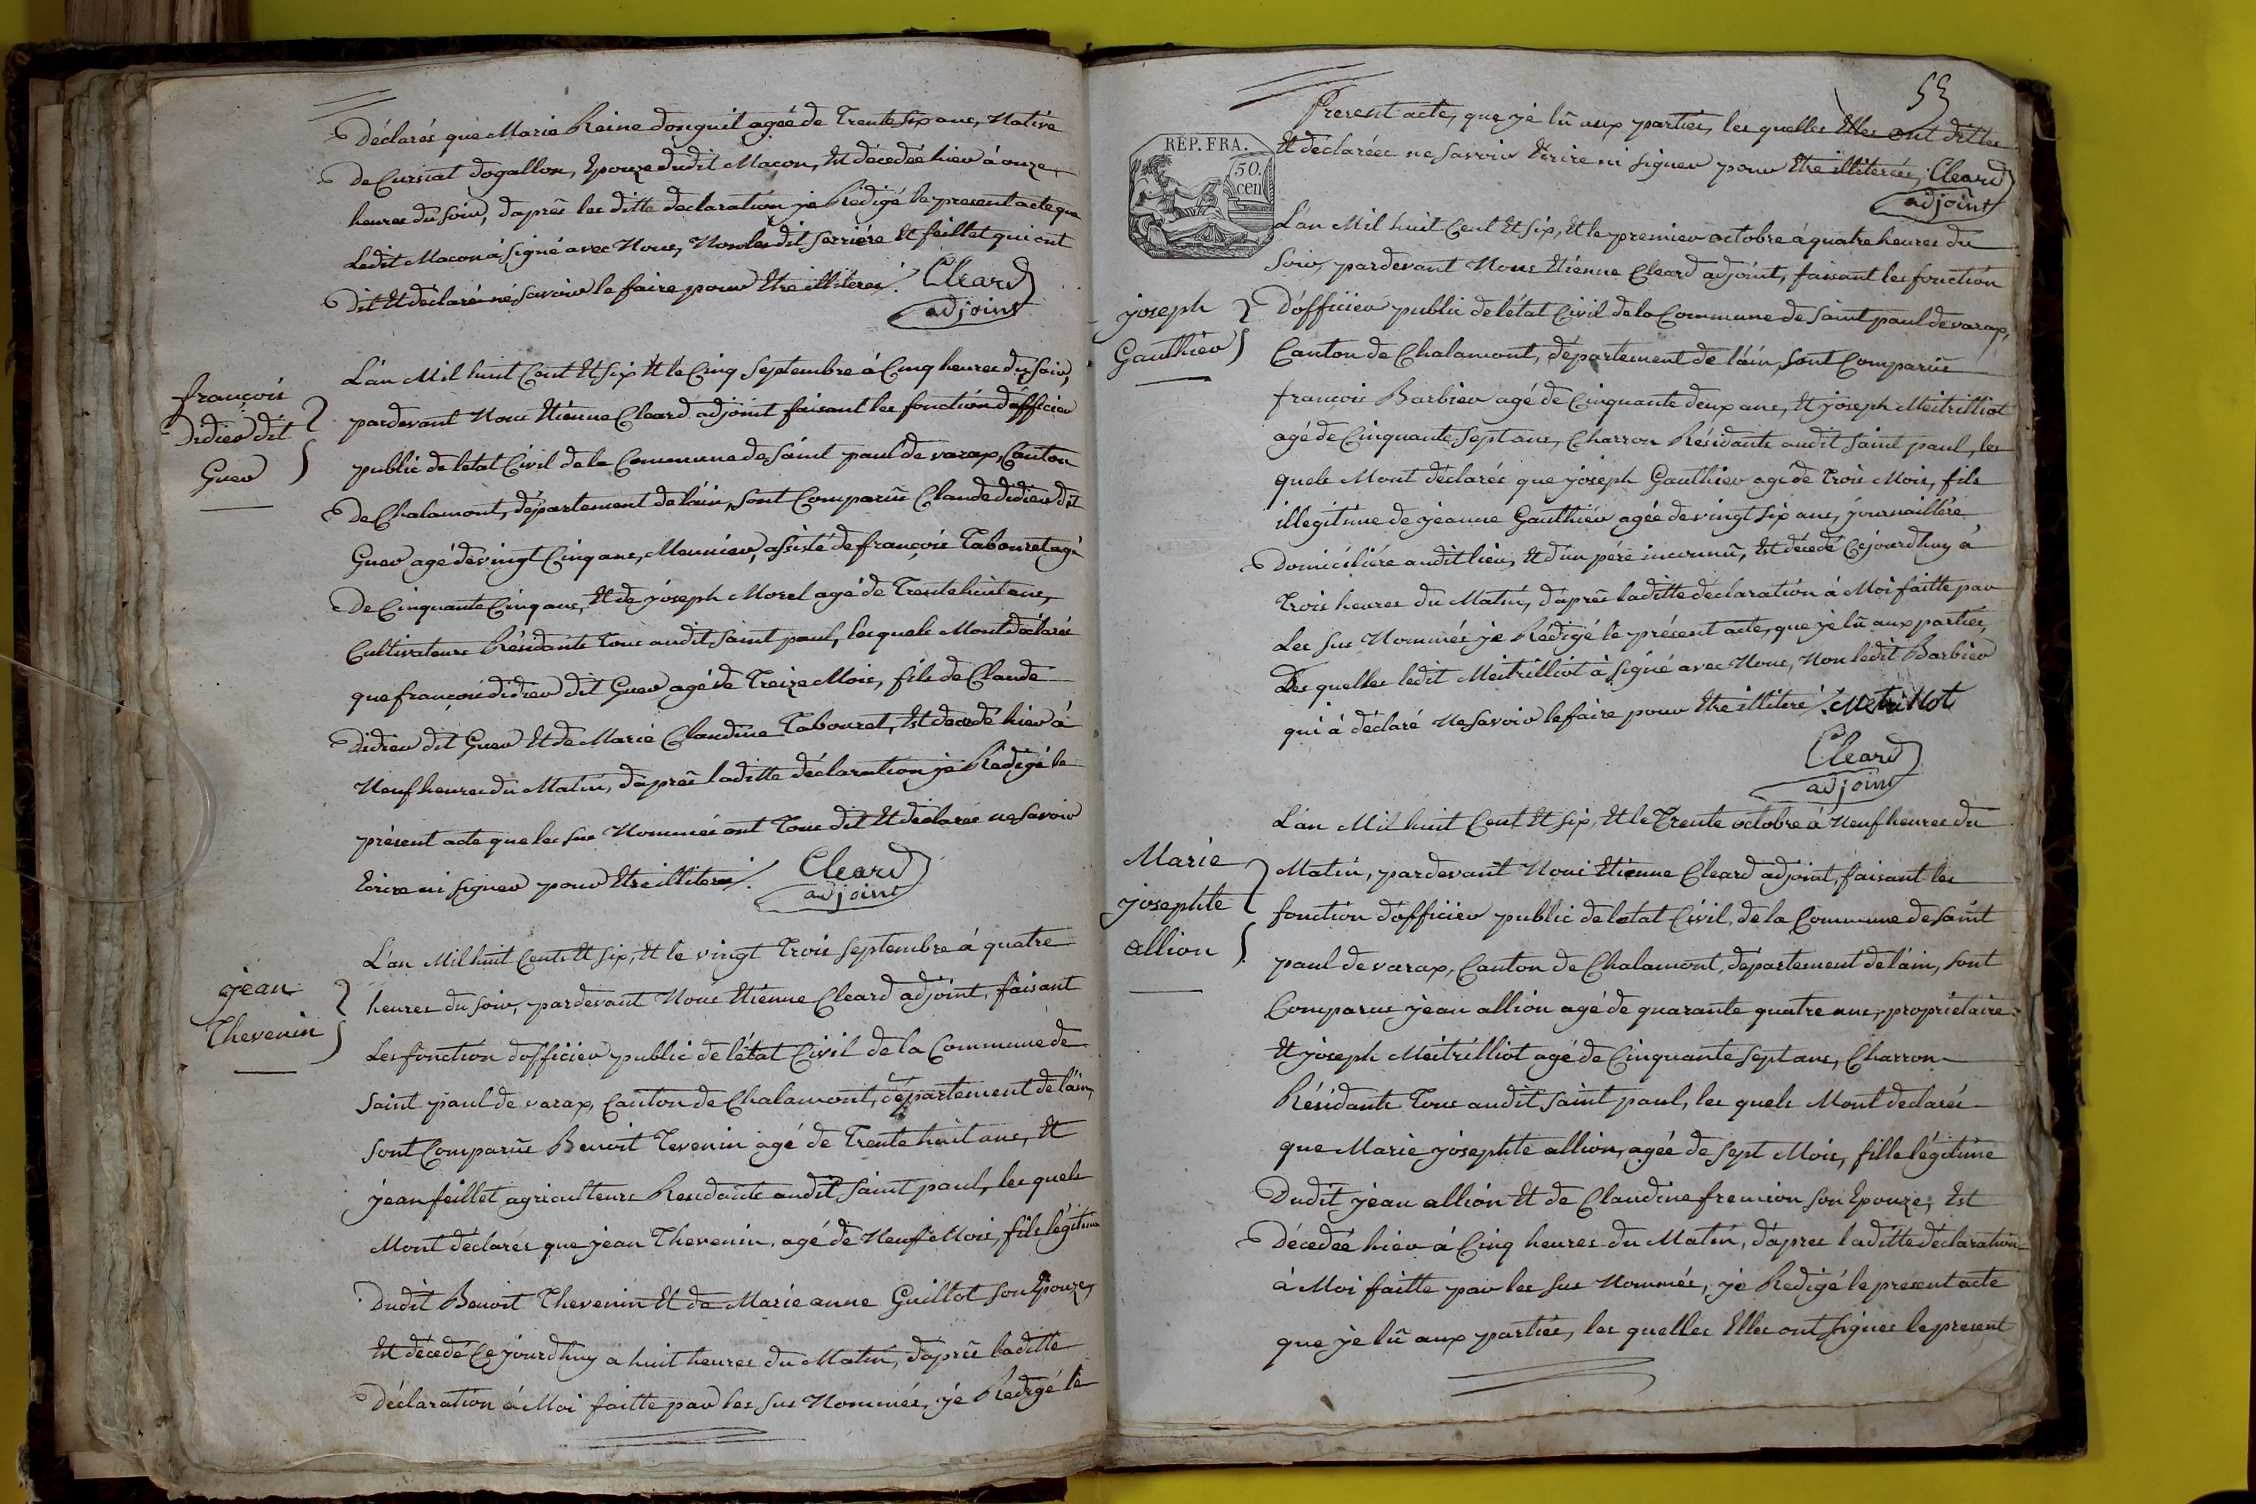 déclarés que Marie Reine donguil agéé de Trente six ans, Native
de Cursiat dogallon, Epouze dudit Macon, Est décedéé hier à onze
heures du soir, daprès les ditte declaration je Rédigé le present acte que
Ledit Macon à signé avec Nous, Non lesdit serriére Et feillet qui ont
dit Et déclarés né savoir le faire pour Etre illiterés. Cleard
adjoint
françois
didier dit
Guer
L'an Mil huit Cent Et six Et le Cinq Septembre à Cinq heures du soir,
pardevant Nous Etienne Cleard adjoint faisant les fonction d'officier
public de letat Civil de la Commune de saint paul de varax, Canton
de Chalamont, département de láin, sont Comparus Claude didier dit
Guer agé de vingt Cinq ans, Meunier, assisté de françois Tabouret agé
de Cinquante Cinq ans, Et de joseph Morel agé de Trente huit ans,
Cultivateurs Résidants Tous audit saint paul, lesquels Mont déclarés
que françois didier dit Guer agé de Treize Mois, fils de Claude
didier dit Guer Et de Marie Claudine Tabouret, Est decedé hier à
Neuf heures du Matin, daprès laditte déclaration je Rédigé le
présent acte que les sus Nommés ont Tous dit Et déclarés ne savoir
Ecrire ni signer pour Etre illiterés. Cleard
adjoint
jean
Thevenin
L'an Mil huit Cents Et six, Et le vingt Trois septembre à quatre
heures du soir, pardevant Nous Etienne Cleard adjoint, faisant
Les fonction dofficier public de létat Civil de la Commune de
saint paul de varax, Canton de Chalamont, département de láin,
sont Comparus Benoit Tevenin agé de Trente huit ans, Et
jean feillet agriculteurs Residants audit saint paul, les quels
Mont declarés que jean Thevenin, agé de Neuf Mois, fils légitime
dudit Benoit Thevenin Et de Marie anne Guillot son Epouze,
Est décédé Ce jourdhuy a huit heures du Matin, daprès laditte
déclaration à Moi faitte par les sus Nommés, je Redigé le
53
Present acte, que jé lû aux parties, les quelles Elles ont dittes
Et déclaréés ne savoir Ecrire ni signer pour Etre illiterées; Cleard
adjoint
REP. FRA.
50.
cen
joseph
Gauthier
L'an Mil huit Cent Et six, Et le premier octobre à quatre heures du
soir, pardevant Nous Etienne Cleard adjoint, faisant les fonction
d'officier public de létat Civil de la Commune de saint paul de varax,
Canton de Chalamont, département de láin, sont Comparus
francois Barbier agé de Cinquante deux ans, Et joseph Meitrilliot
agé de Cinquante sept ans, Charron Résidants audit saint paul, les
quels Mont déclarés que joseph Gauthier agé de Trois Mois, fils
illegitime de jeanne Gauthier agée de vingt six ans, journaillére
domiciliére audit lieu, Et d'un pére inconnu, Est décedé Ce jourdhuy à
Trois heures du Matin, daprès laditte déclaration à Moi faitte par
Les sus Nommés je Rédigé le présent acte, que jé lû aux parties,
Des quelles ledit Meitrilliot à signé avec Nous, Non ledit Barbier
qui à déclaré ne savoir le faire pour Etre illiteré. Metrillot
Cleard
adjoint
Marie
josephte
allion
L'an Mil huit Cent Et six, Et le Trente octobre à Neuf heures du
Matin, pardevant Nous Etienne Cleard adjoint, faisant les
fonction d'officier public de létat Civil, de la Commune de saint
paul de varax, Canton de Chalamont, département de láin, sont
Comparus jean allion agé de quarante quatre ans, propriétaire
Et joseph Meitrilliot agé de Cinquante sept ans, Charron
Résidants Tous audit saint paul, les quels Mont declarés
que Marie josephte allion, agéé de sept Mois, fille légitime
Dudit jean allion Et de Claudine fremion son Epouze, Est
décedéé hier à Cinq heures du Matin, dápres laditte déclaration
à Moi faitte par les sus Nommés, je Redigé le present acte
que jé lû aux parties, les quelles Elles ont signés le present